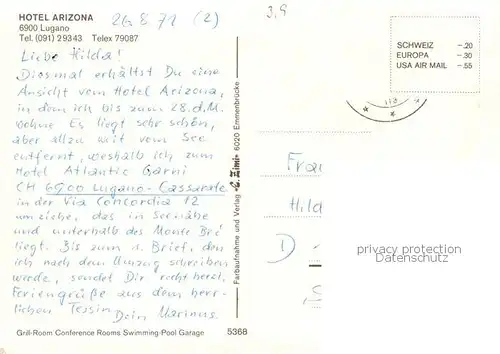 HOTEL ARIZONA
6900 Lugano
Tel. (091) 29343 Telex 79087
26.8.71 (2)
Liebe Hilda!
Diesmal erhältst Du eine
Ansicht vom Hotel Arizona,
in dem ich bis zum 28.d.M.
wohne. Es liegt sehr schön,
aber allzu weit vom See
entfernt, weshalb ich zum
Hotel Atlantic Garni
CH 6900 Lugano-Cassarate
in der Via Concordia 12
umziehe, das in Seenähe
und unterhalb des Monte Brè
liegt. Bis zum 1. Brief, den
ich nach dem Umzug schreiben
werde, sendet Dir recht herzl.
Feriengrüße aus dem herr-
lichen Tessin
Dein Marinus
Grill-Room Conference Rooms Swimming-Pool Garage
5368
Farbaufnahme und Verlag E. Zimi 6020 Emmenbrücke
3,9
SCHWEIZ -.20
EUROPA -.30
USA AIR MAIL -.55
Frau
Hild
D
privacy protection
Datenschutz